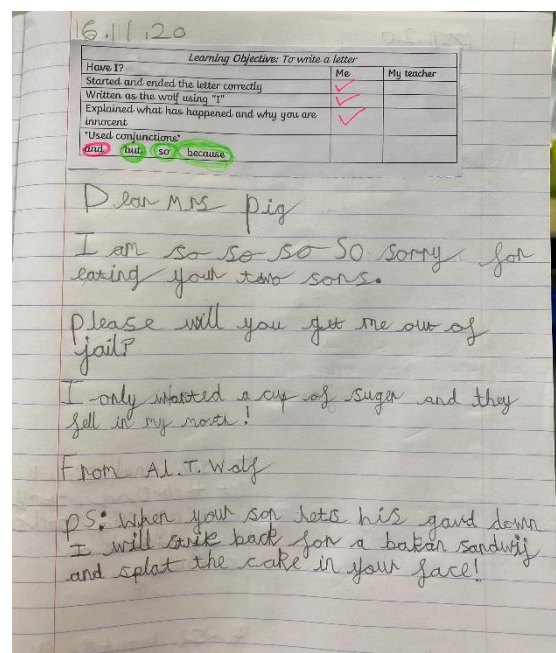 16.11.20
Learning Objective: To write a letter
Have I? Me My teacher
Started and ended the letter correctly
Written as the wolf using "I"
Explained what has happened and why you are
innocent
*Used conjunctions*
and but so because
Dear Mrs pig
I am so so so SO sorry for
eating your two sons.
please will you get me out of
jail?
I only wanted a cup of suger and they
fell in my mouth!
From Al.T.Wolf
PS: When your son lets his gaurd down
I will strik back for a bakan sandwij
and splat the cake in your face!